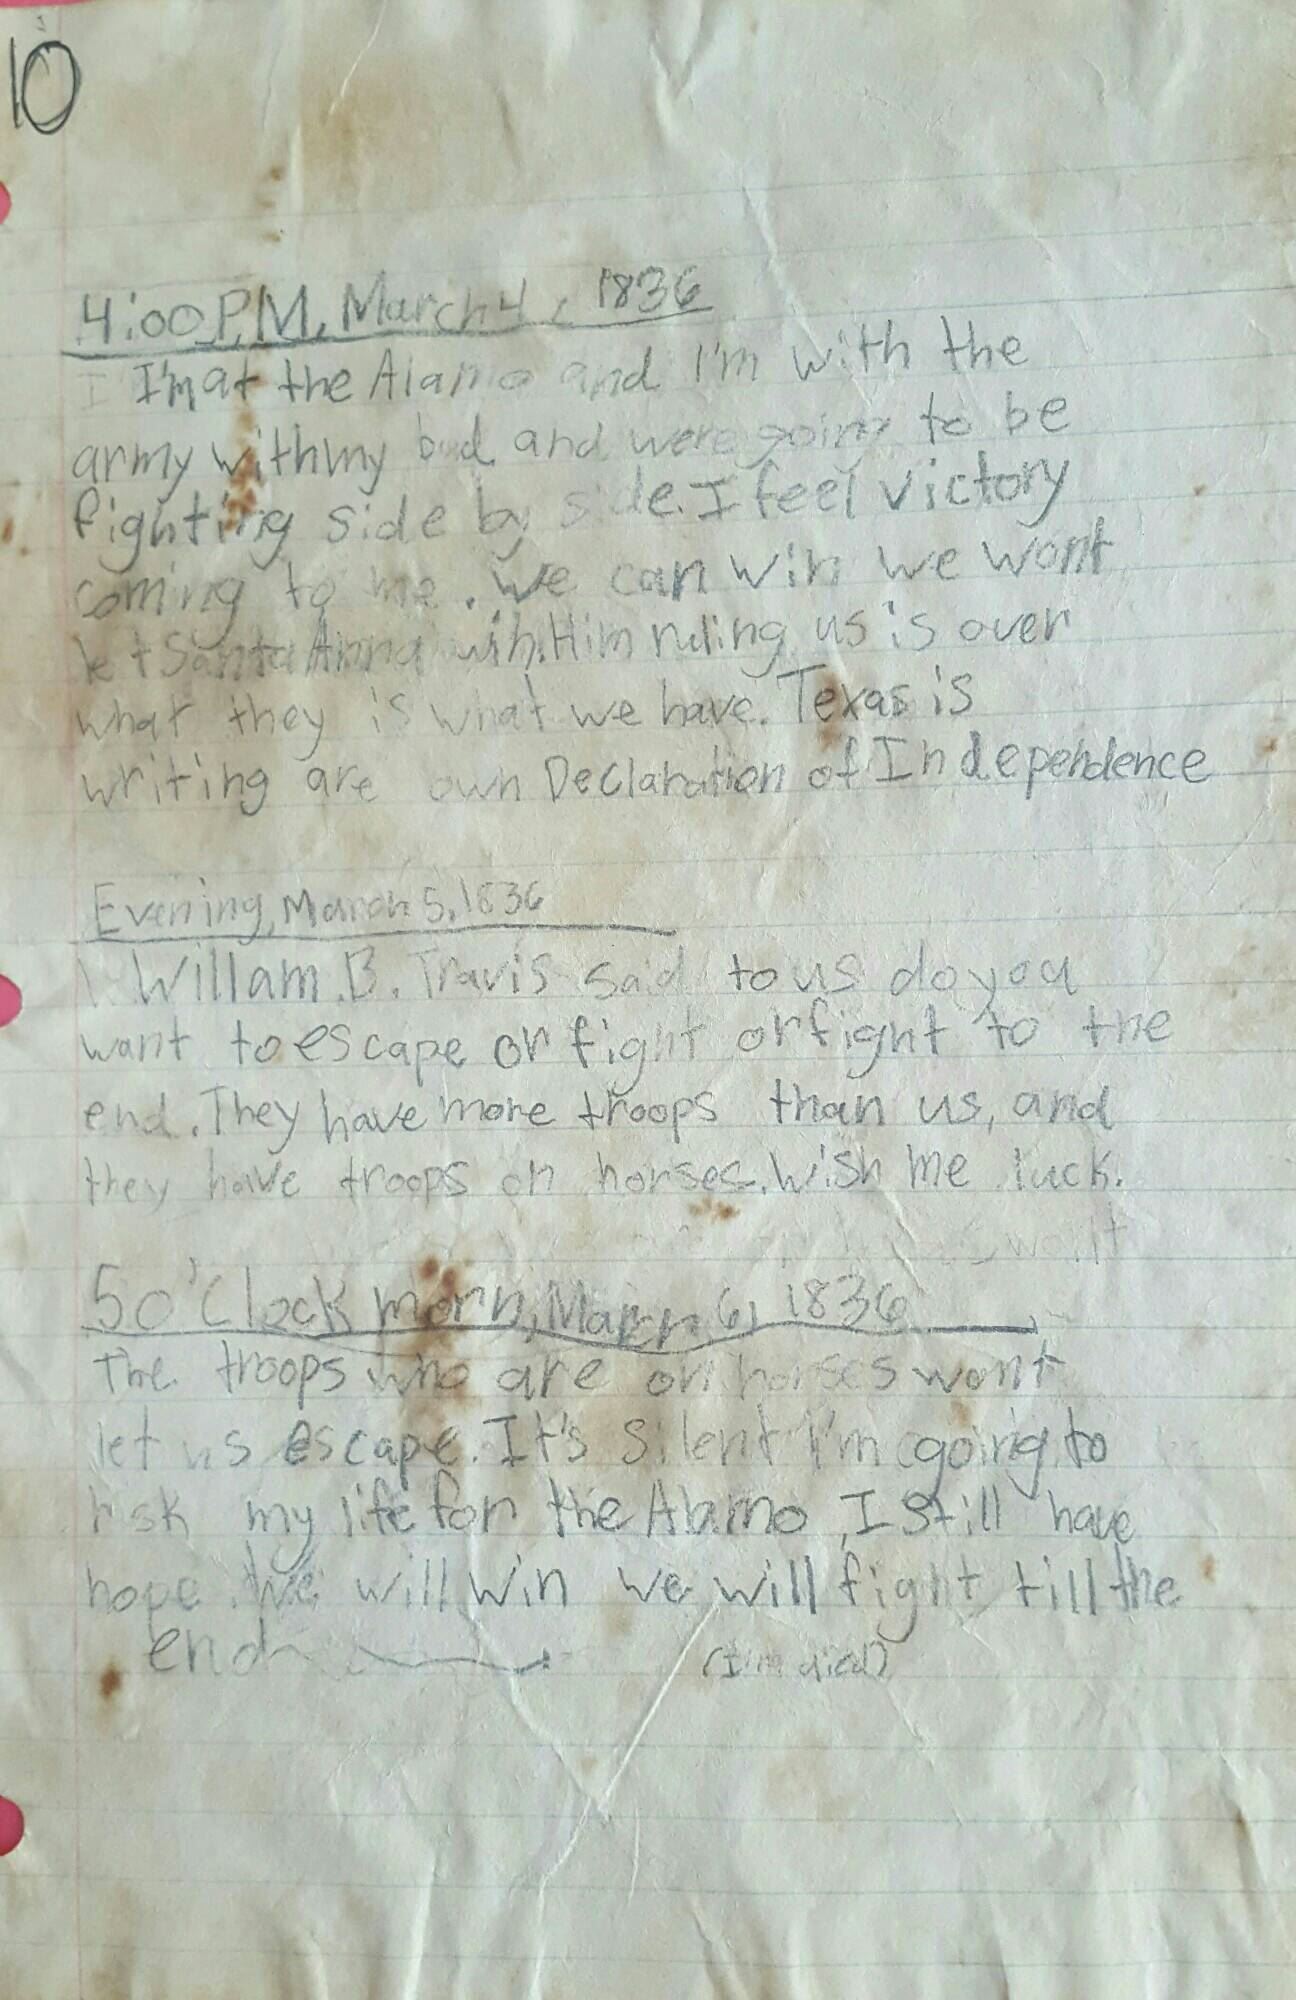 10
4:00 P.M, March 4, 1836
I'm at the Alamo and I'm with the
army with my bud and were going to be
fighting side by side. I feel victory
coming to me. We can win we wont
let Santa Anna win. Him ruling us is over
what they is what we have. Texas is
writing are own Declaration of Independence
Evening, March 5, 1836
Willam .B. Travis said to us do you
want to escape or fight or fight to the
end. They have more troops than us, and
they have troops on horses. Wish me luck.
5 o'Clock morn, March 6, 1836
The troops who are on horses wont
let us escape. It's silent I'm going to
risk my life for the Alamo, I still have
hope. We will win we will fight till the
end
(I'm died)